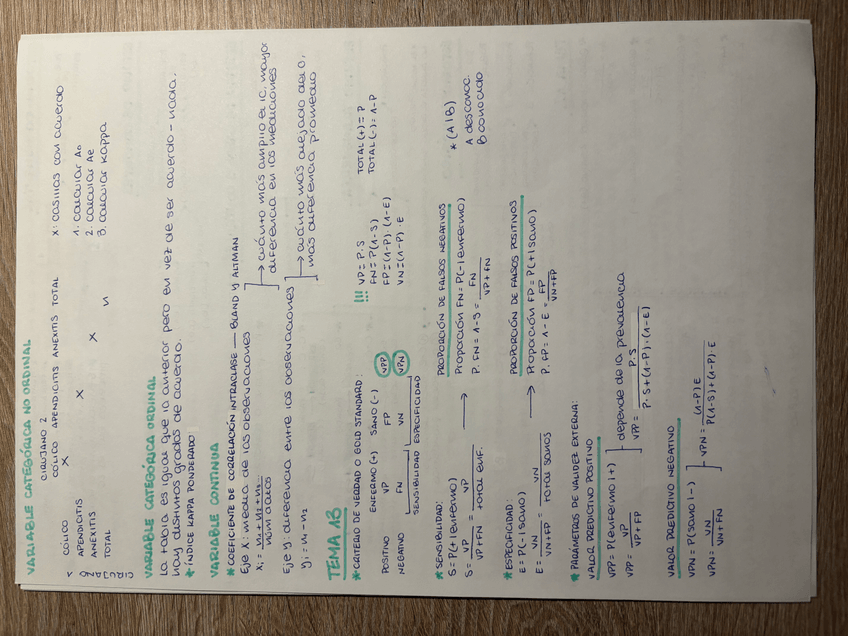 VARIABLE CATEGÓRICA NO ORDINAL
CIRUJANO 2
CÓLICO APENDICITIS ANEXITIS TOTAL
CÓLICO X
APENDICITIS X
ANEXITIS X
TOTAL N
X: casillas con acuerdo
1. calcular Ao
2. calcular Ae
3. calcular kappa
VARIABLE CATEGÓRICA ORDINAL
La tabla es igual que la anterior pero en vez de ser acuerdo - nada.
hay distintos grados de acuerdo.
* ÍNDICE KAPPA PONDERADO
VARIABLE CONTINUA
* COEFICIENTE DE CORRELACIÓN INTRACLASE — BLAND Y ALTMAN
Eje X: media de las observaciones
núm datos
→ cuánto más amplio el IC, mayor
diferencia en las mediciones
Eje y: diferencia entre las observaciones
→ cuánto más alejado del 0,
más diferencia promedio
TEMA 13
* CRITERIO DE VERDAD O GOLD STANDARD:
ENFERMO (+) SANO (-)
POSITIVO VP FP VPP
NEGATIVO FN VN VPN
SENSIBILIDAD ESPECIFICIDAD
!!! VP = P·S
FN = P(1-S)
FP = (1-P)·(1-E)
VN = (1-P)·E
TOTAL (+) = P
TOTAL (-) = 1-P
* SENSIBILIDAD:
S = P(+|enfermo)
S = VP / VP+FN = VP / total enf.
→
PROPORCIÓN DE FALSOS NEGATIVOS
Proporción FN = P(-|enfermo)
P. FN = 1-S = FN / VP+FN
* (A|B)
A desconoc.
B conocido
* ESPECIFICIDAD:
E = P(-|sano)
E = VN / VN+FP = VN / total sanos
→
PROPORCIÓN DE FALSOS POSITIVOS
Proporción FP = P(+|sano)
P. FP = 1-E = FP / VN+FP
* PARÁMETROS DE VALIDEZ EXTERNA:
VALOR PREDICTIVO POSITIVO
VPP = P(enfermo|+)
VPP = VP / VP+FP
depende de la prevalencia
VPP = P·S / P·S+(1-P)·(1-E)
VALOR PREDICTIVO NEGATIVO
VPN = P(sano|-)
VPN = VN / VN+FN
VPN = (1-P)E / P(1-S)+(1-P)·E